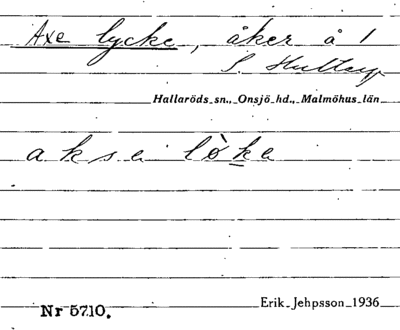 Axe lycke, åker å 1
S. Hultarp
Hallaröds sn., Onsjö hd., Malmöhus län
aksa lòka
Erik Jehpsson 1936
Nr 5710.